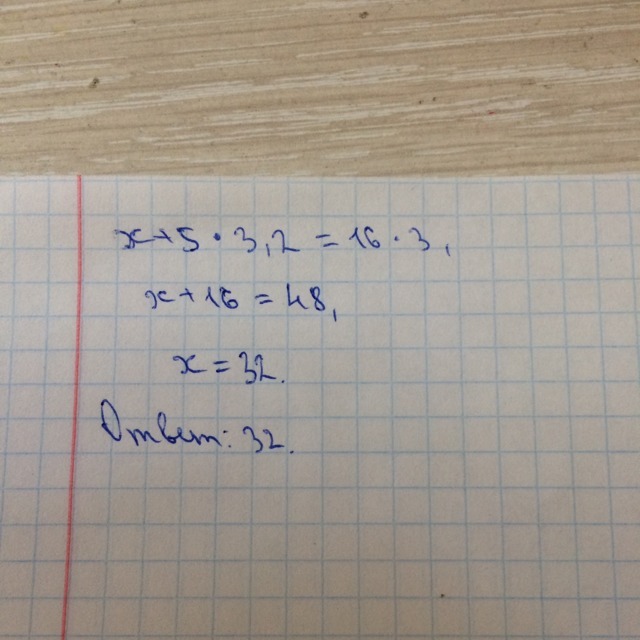 x+5·3,2=16·3,
x+16=48,
x=32.
Ответ: 32.